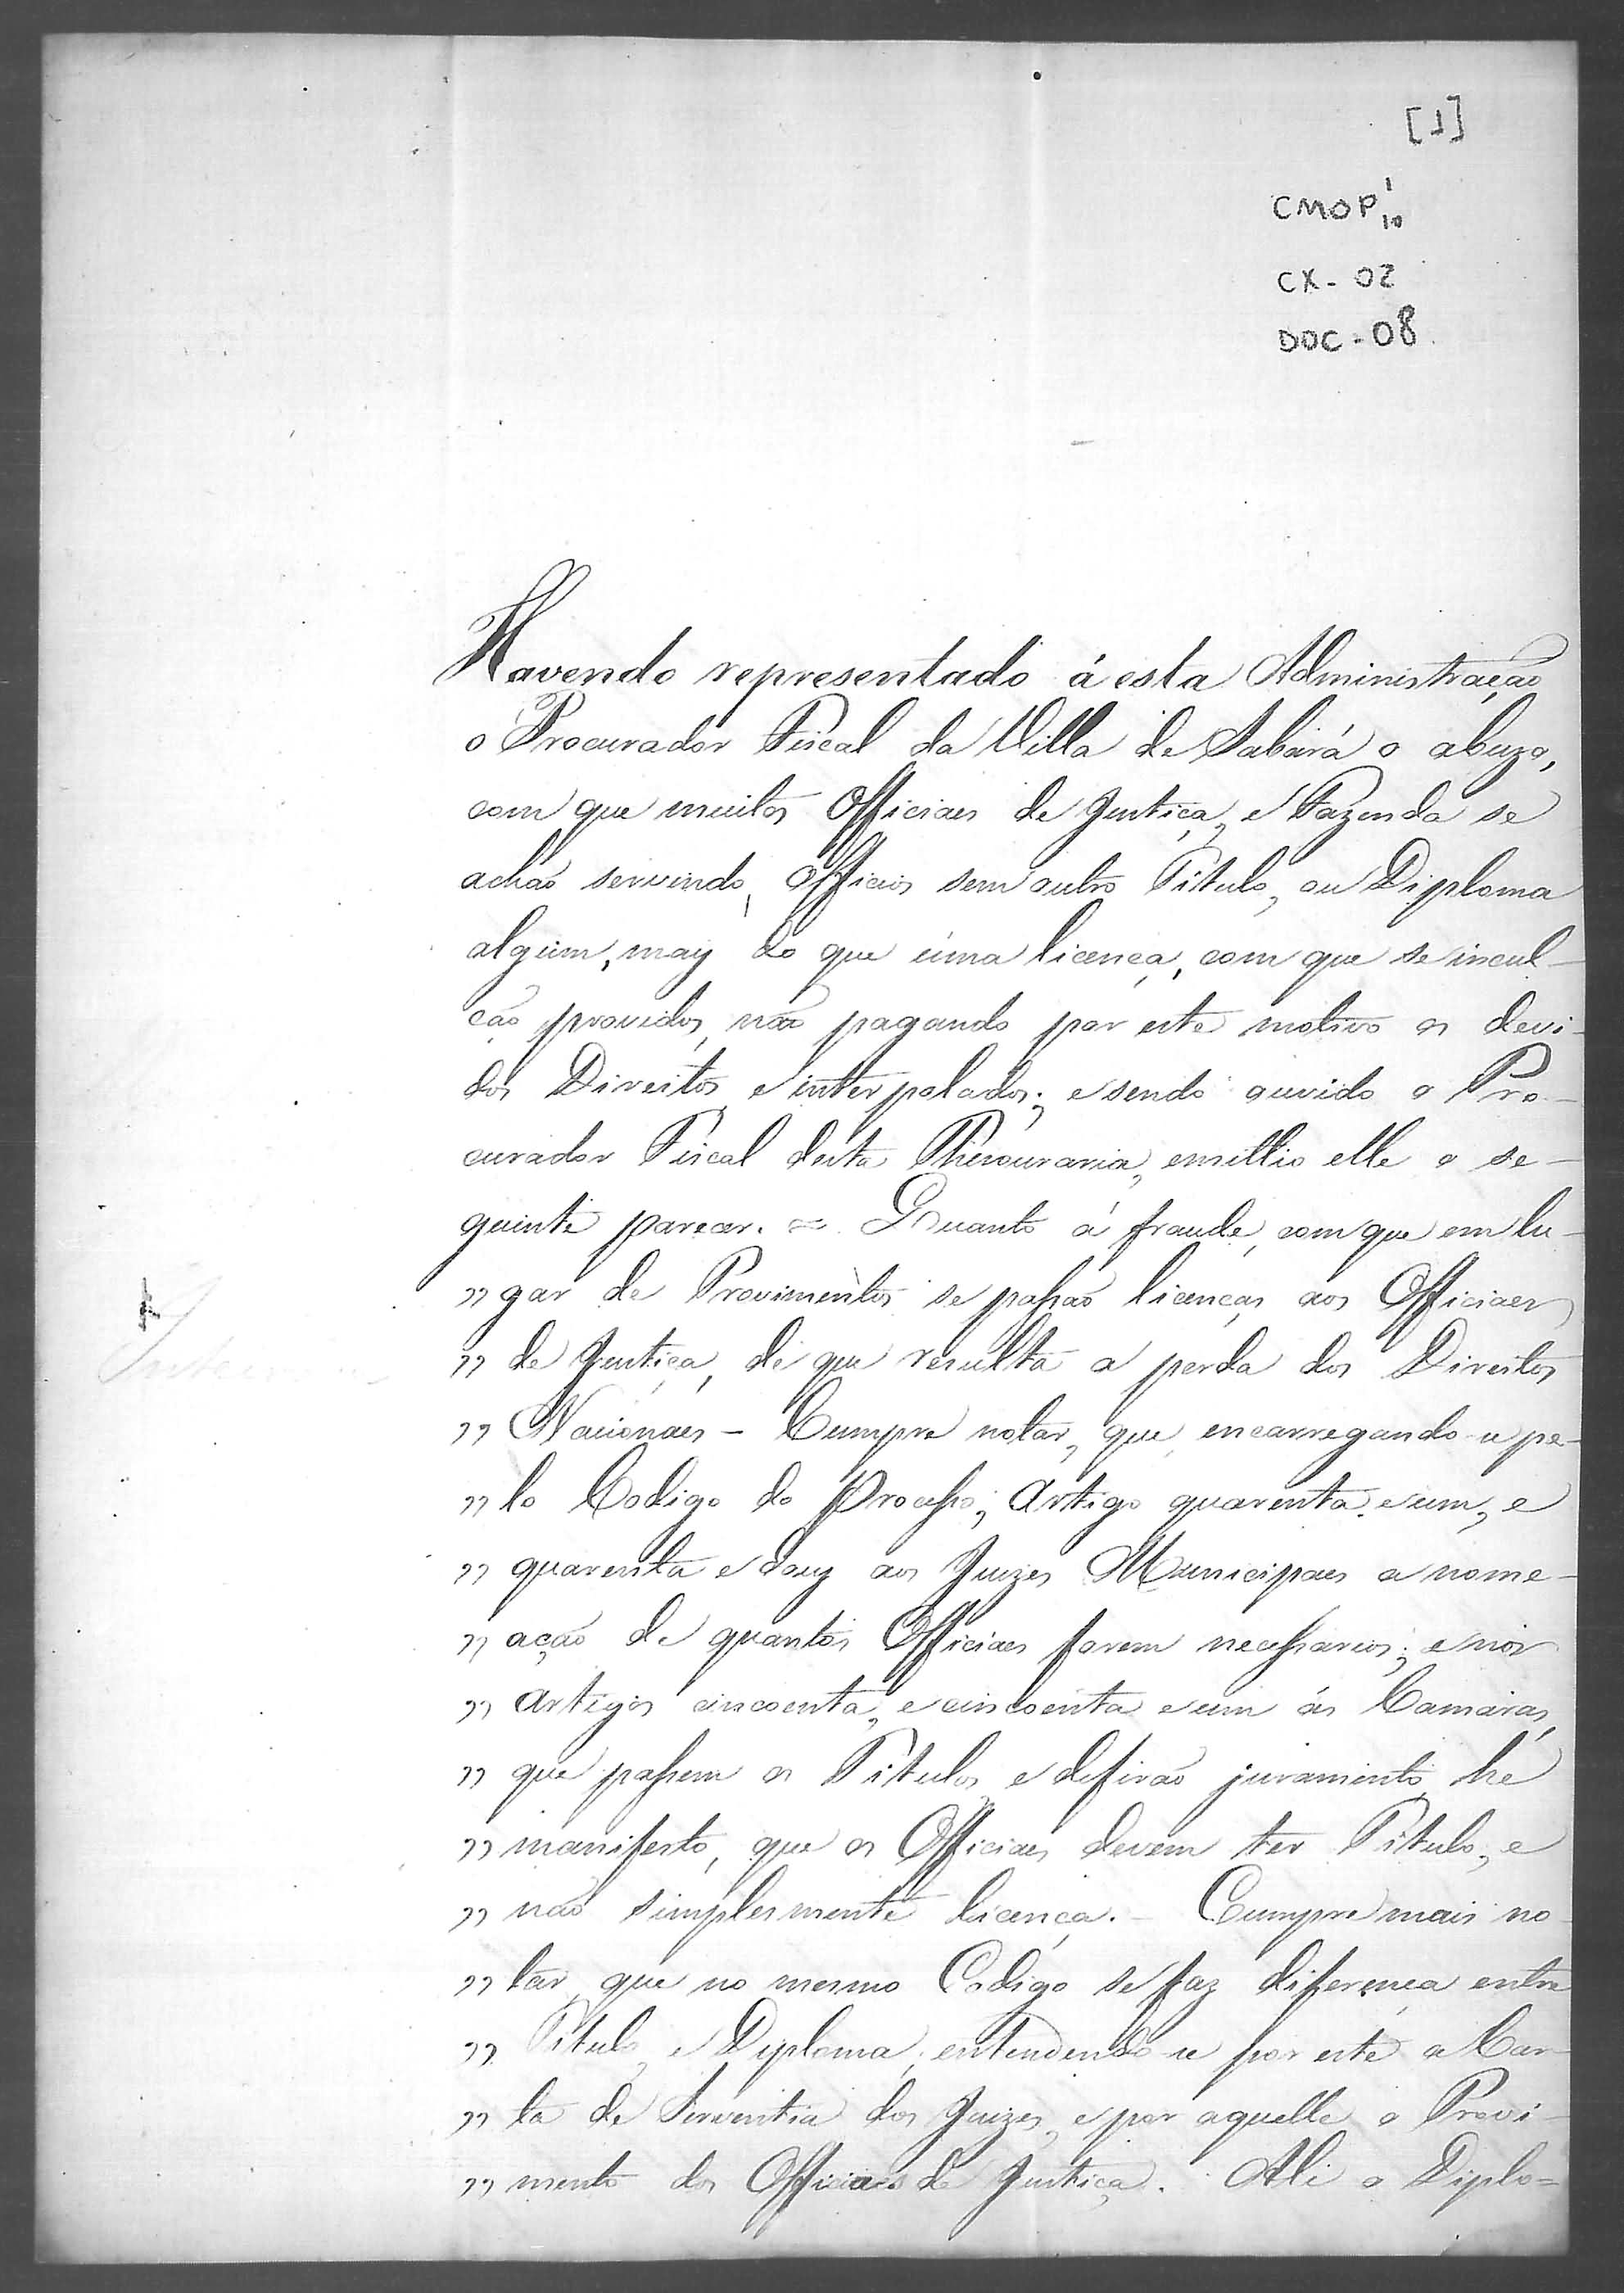 [1]
CMOP 1/10
CX - 02
DOC - 08.
Havendo representado á esta Administração
o Procurador Fiscal da Villa de Sabará o abuzo,
com que muitos Officiaes de Justiça, e Fazenda se
achão servindo, Officios sem outro Titulo, ou Diploma
algum, mais do que uma licença, com que se incul-
cão providos, não pagando por este motivo os devi-
dos Direitos, e interpolados; e sendo ouvido o Pro-
curador Fiscal desta Thesouraria, emittio elle o se-
guinte parecer. = Quanto á fraude, com que em lu-
" gar de Provimentos se passão licenças aos Officiaes
" de Justiça, de que resulta a perda dos Direitos
" Nacionaes - Cumpre notar, que encarregando-se pe-
" lo Codigo do Processo, Artigo quarenta e um, e
" quarenta e dous aos Juizes Municipaes a nome-
" ação de quantos Officiaes forem necessarios; e nos
" Artigos cincoenta, e cincoenta e um ás Camaras,
" que passem os Titulos, e defirão juramento, he
" manifesto, que os Officiaes devem ter Titulo, e
" não simplesmente licença. - Cumpre mais no-
" tar, que no mesmo Codigo se faz diferença entre
" Titulo, e Diploma, entendendo-se por este a Car-
" ta de Serventia dos Juizes, e por aquelle o Provi-
" mento dos Officiaes de Justiça. Ali o Diplo=